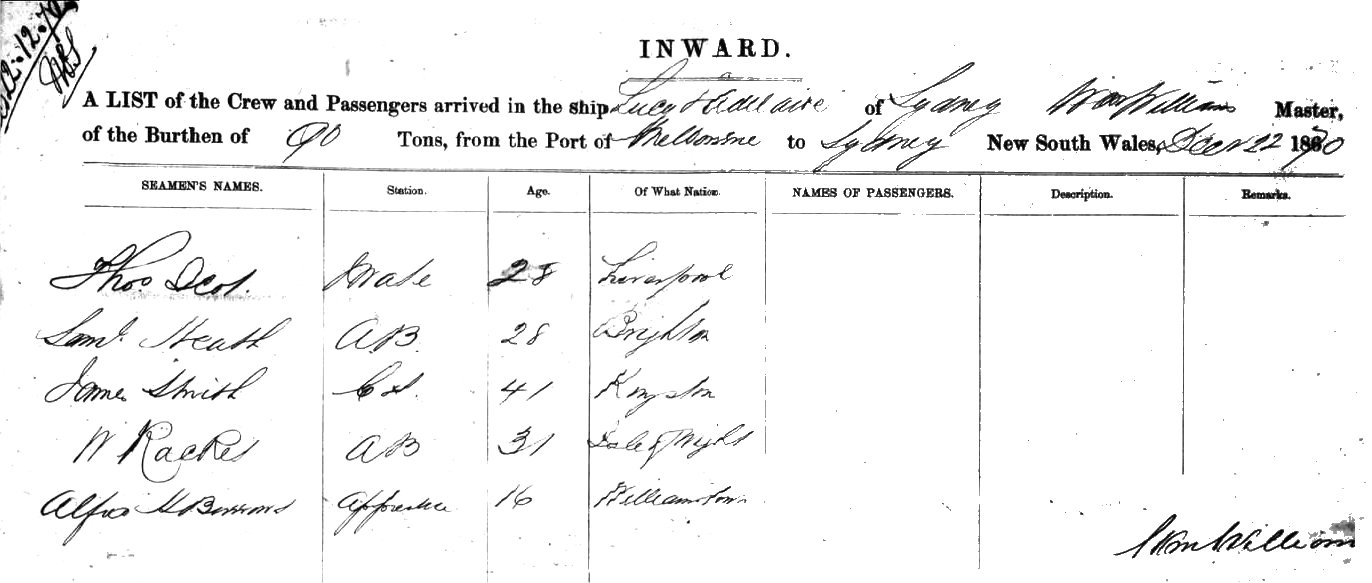 22.12.70
INWARD.
A LIST of the Crew and Passengers arrived in the ship Lucy & Adelaide of Sydney Wm Williams Master,
of the Burthen of 90 Tons, from the Port of Melbourne to Sydney New South Wales, Decr 22 1870
SEAMEN'S NAMES. Station. Age. Of What Nation. NAMES OF PASSENGERS. Description. Remarks.
Thos Mate 28 Liverpool
Saml Heath AB 28 Brighton
James Smith 41 Kingston
W AB 31 Isle of Wight
Alfred H Apprentice 16 Williamstown
Wm Williams